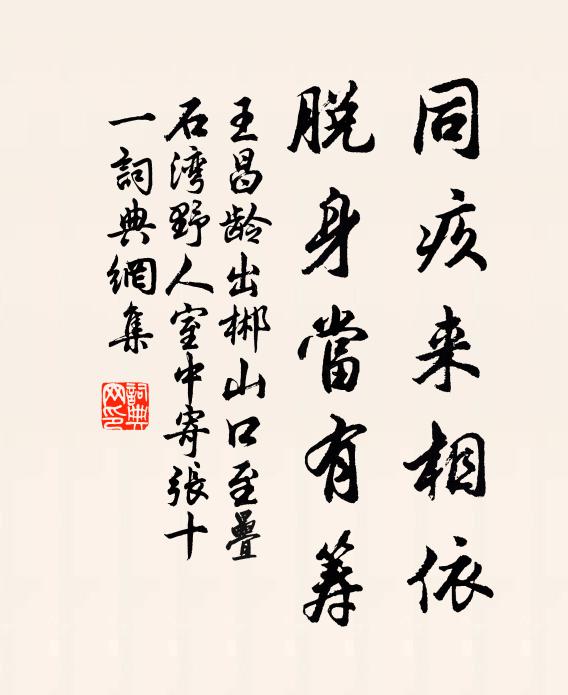 同疚来相依
脱身當有筹
王昌龄出郴山口至疊
石湾野人室中寄張十
一詞典網集
詞典网印